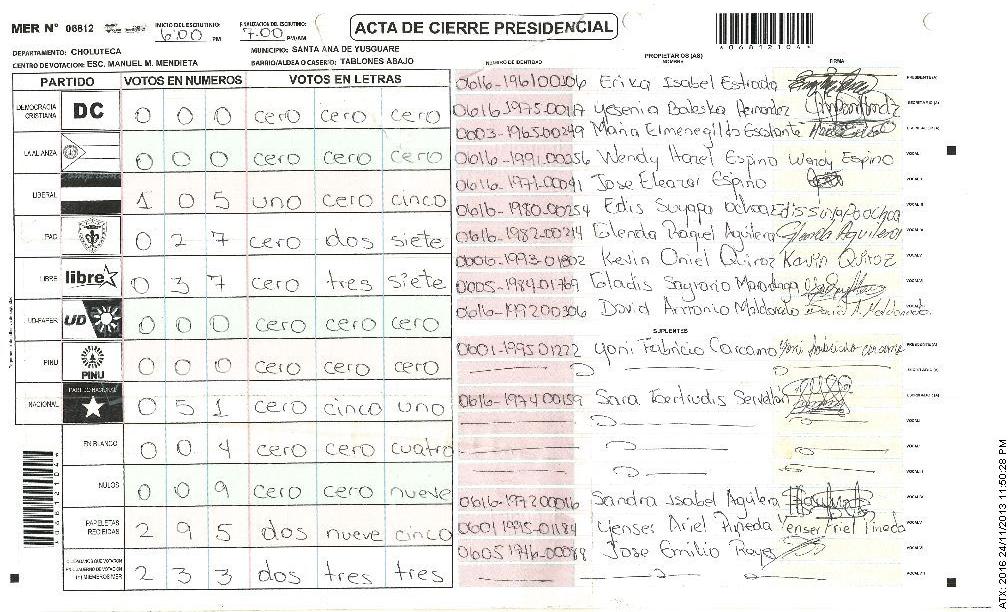 MER N° 06812 INICIO DEL ESCRUTINIO: 6:00 PM FINALIZACION DEL ESCRUTINIO: 7:00 PM/AM ACTA DE CIERRE PRESIDENCIAL
* 0 6 8 1 2 1 0 4 *
DEPARTAMENTO: CHOLUTECA MUNICIPIO: SANTA ANA DE YUSGUARE
CENTRO DE VOTACION: ESC. MANUEL M. MENDIETA BARRIO/ALDEA O CASERIO: TABLONES ABAJO
PARTIDO VOTOS EN NUMEROS VOTOS EN LETRAS
DEMOCRACIA CRISTIANA DC 0 0 0 cero cero cero
LA ALIANZA 0 0 0 cero cero cero
LIBERAL 1 0 5 uno cero cinco
PAC 0 2 7 cero dos siete
LIBRE libre 0 3 7 cero tres siete
UD-FAPER UD 0 0 0 cero cero cero
PINU PINU 0 0 0 cero cero cero
NACIONAL PARTIDO NACIONAL 0 5 1 cero cinco uno
EN BLANCO 0 0 4 cero cero cuatro
NULOS 0 0 9 cero cero nueve
PAPELETAS RECIBIDAS 2 9 5 dos nueve cinco
CIUDADANOS QUE VOTARON EN CUADERNO DE VOTACION (+) MIEMBROS MER 2 3 3 dos tres tres
PROPIETARIOS (AS)
NUMERO DE IDENTIDAD NOMBRE FIRMA
0616-196100106 Erika Isabel Estrada PRESIDENTE(A)
0616-1975-00117 Yesenia SECRETARIO (A)
0003-1965-00249 Maria Elmenegildo Escalante
0616-1991-00356 Wendy Hazel Espino Wendy Espino VOCAL I
0616-1971-00091 Jose Eleazar Espino VOCAL II
0616-1980-00254 Edis Suyapa Ochoa Edis Suyapa Ochoa VOCAL III
0616-1982-00214 Glenda Raquel Aguilera Glenda Aguilera
0006-1993-01802 Kevin Oniel Quiroz Kevin Quiroz
0005-1984-01769 Gladis Sagrario
0616-199200306 David Antonio Maldonado David A. Maldonado
SUPLENTES
0601-199501222 Yoni Fabricio Carcamo PRESIDENTE(A)
SECRETARIO (A)
0616-1974-00159 Sara Gertrudis Servellon
VOCAL I
VOCAL II
0616-1972-00016 Sandra Isabel Aguilera
0601 1995-01184 Yenser Ariel Pineda Yenser Ariel Pineda
0605 1976-00088 Jose Emilio Reyes
ATX: 2016 24/11/2013 11:50:28 PM